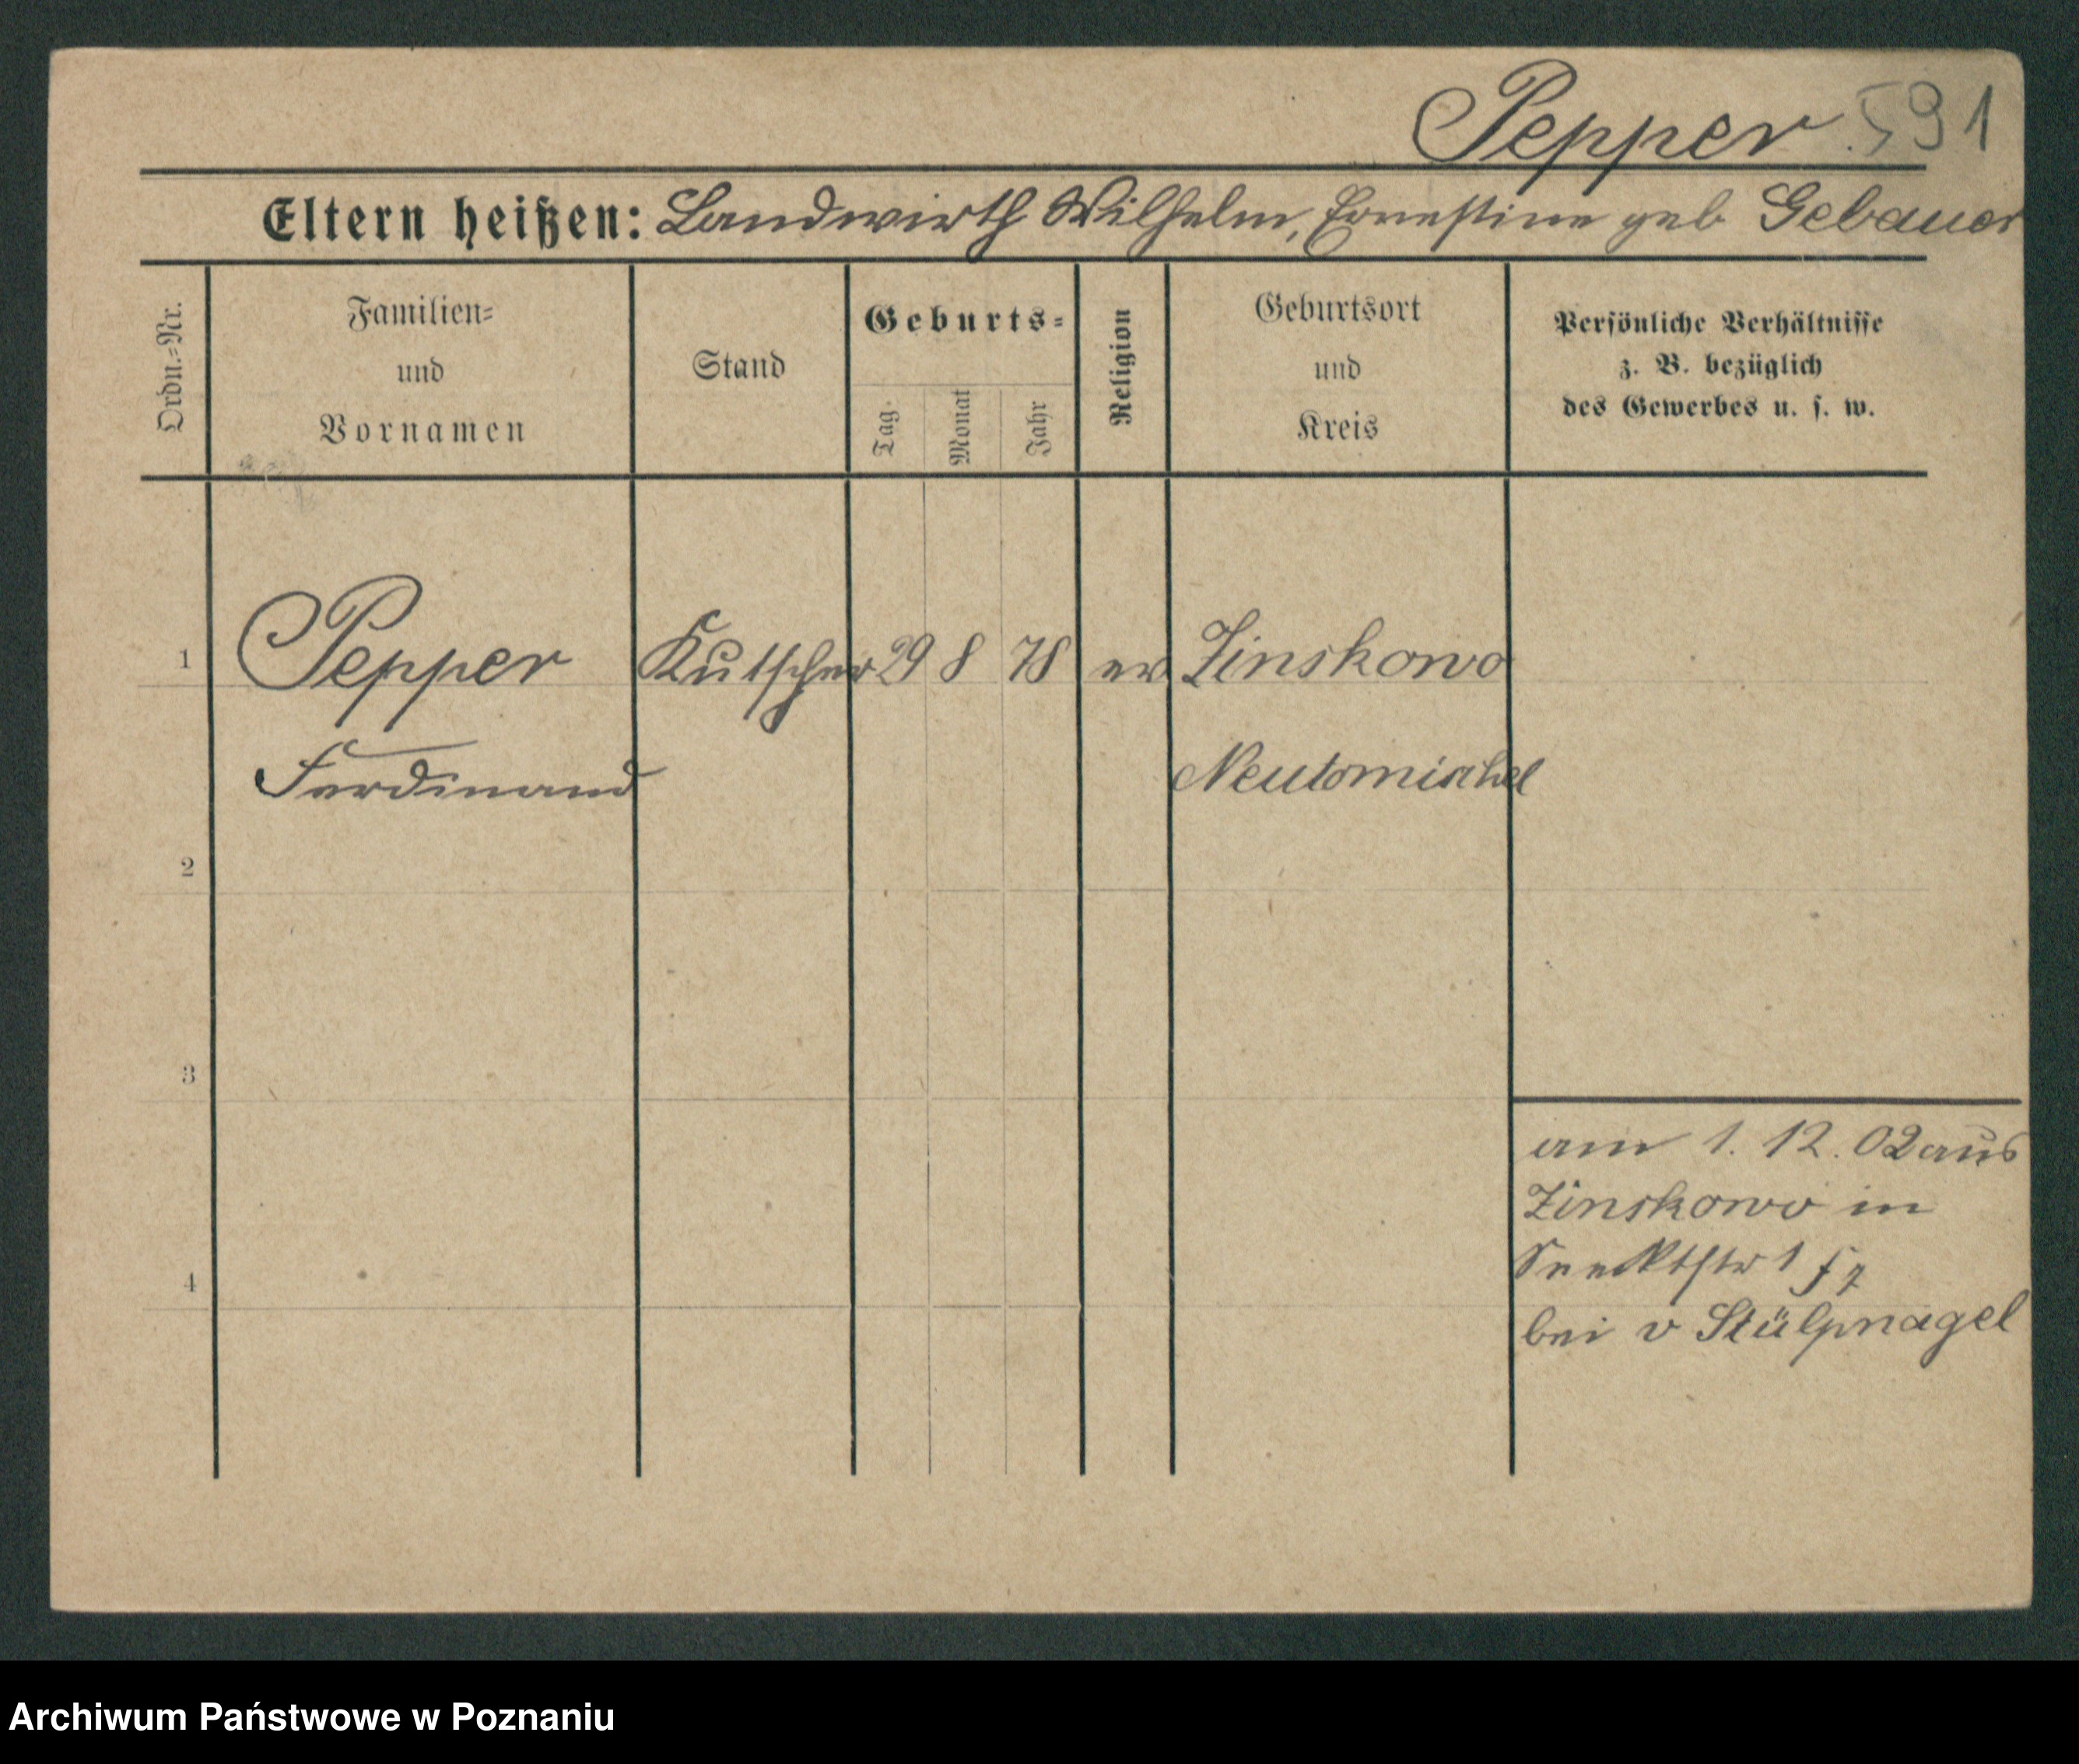 Pepper 591
Eltern heißen: Landwirth Wilhelm, Ernestine geb Gebauer
Ordn.-Nr.
Familien-
und
Vornamen
Stand
Geburts-
Tag.
Monat
Jahr
Religion
Geburtsort
und
Kreis
Persönliche Verhältnisse
z. B. bezüglich
des Gewerbes u. s. w.
1 Pepper Kutscher 29 8 78 ev Zinskowo
Ferdinand Neutomischel
2
3
4
am 1. 12. 02 aus
Zinskowo in
1
bei v Stülpnagel
Archiwum Państwowe w Poznaniu